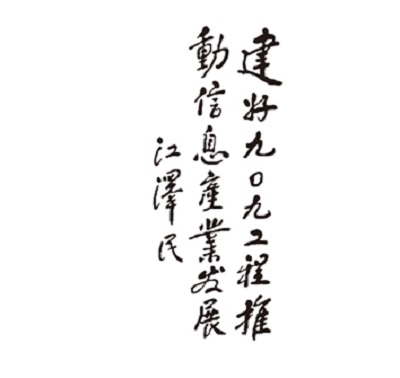 建好九〇九工程推
動信息產業发展
江澤民